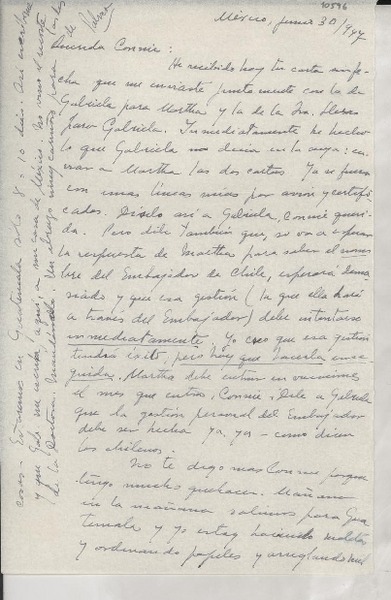 10596
México, junio 30/947
Querida Connie:
He recibido hoy tu carta sin fe-
cha que me enviaste juntamente con la de
Gabriela para Martha y la de la Sra.
para Gabriela. Inmediatamente he hecho
lo que Gabriela me decía en la suya: en-
viar a Martha las dos cartas. Ya se fueron
con unas líneas mías por avión y certifi-
cados. Díselo así a Gabriela, Connie queri-
da. Pero dile también que, si va a esperar
la respuesta de Martha para saber el nom-
bre del Embajador de Chile, esperará dema-
siado y que esa gestión (la que ella hará
a través del Embajador) debe intentarse
inmediatamente. Yo creo que esa gestión
tendría éxito, pero hay que hacerla ense-
guida. Martha debe entrar en vacaciones
el mes que entra, Connie. Dile a Gabriela
que la gestión personal del Embajador
debe ser hecha ya, ya - como dicen
los chilenos.
No te digo más Connie porque
tengo mucho quehacer. Mañana
en la mañana salimos para Gua
temala y yo estoy haciendo maletas
y ordenando papeles y arreglando mil
cosas - Estaremos en Guatemala sólo 8 a 10 días. Así escríbeme
y que Gab. me escriba aquí, a mi casa de México.
de la Doctora. Un abrazo muy cariñoso para
de Palma